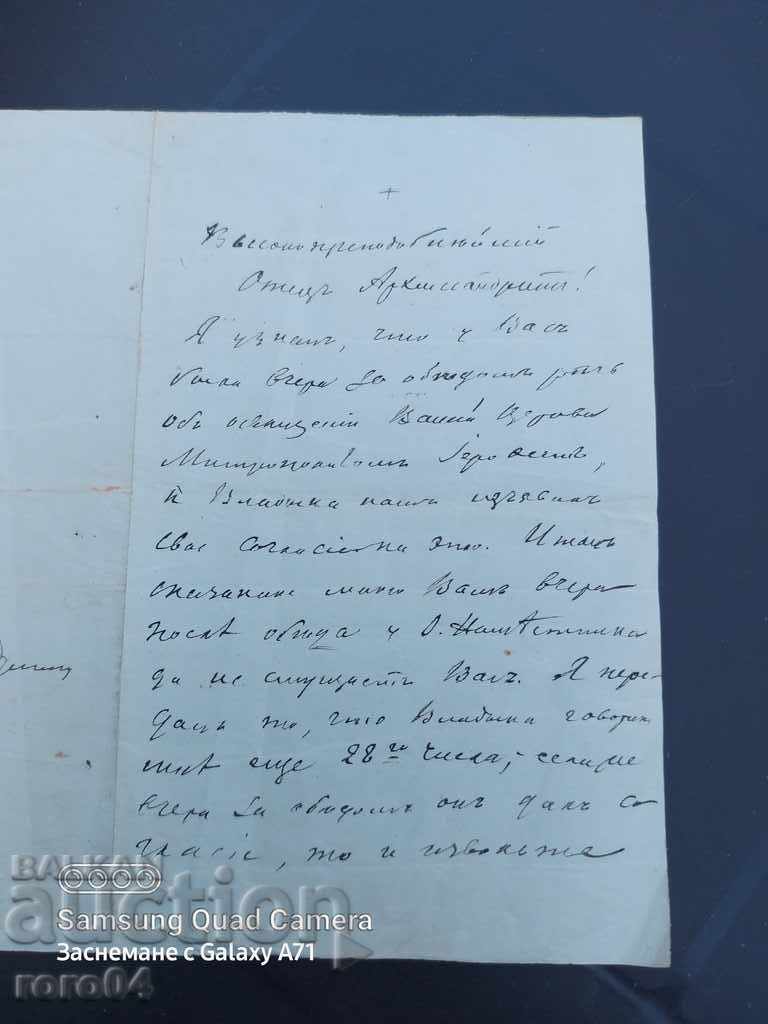 +
Высокопреподобнѣйшій
Отецъ Архимандритъ!
Я узналъ, что у Васъ
была вчера за обѣдомъ рѣчь
объ освященіи Вашей Церкви
Митрополитомъ
и Владыка нашъ изъявилъ
свое согласіе на это. Итакъ
сказанное мною Вамъ вчера
послѣ обѣда у О. Намѣстника
да не смущаетъ Васъ. Я пере-
далъ то, что Владыка говорилъ
мнѣ еще 28го числа; если же
вчера за обѣдомъ онъ далъ со
гласіе, то и извольте
BALKAN
auction
roro04
Samsung Quad Camera
Заснемане с Galaxy A71